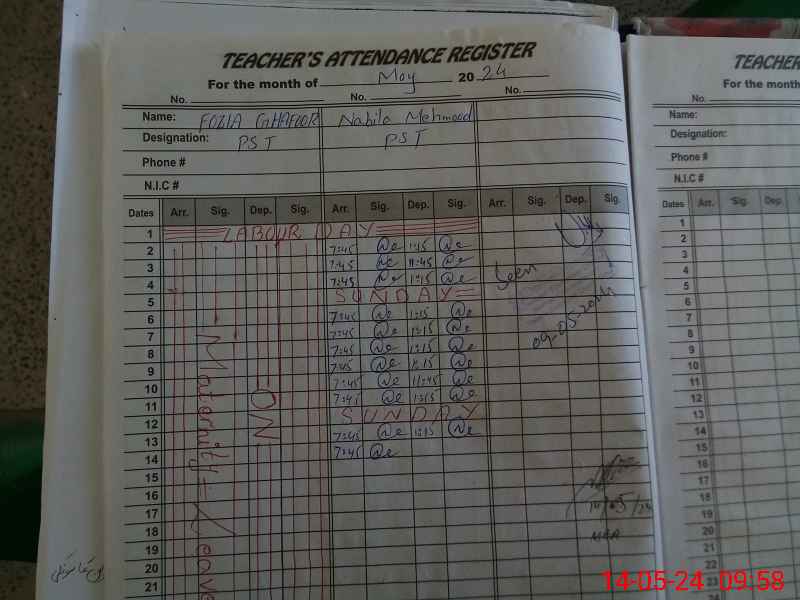 TEACHER'S ATTENDANCE REGISTER
For the month of May 2024
No. No. No.
Name: FOZIA GHAFOOR Nabila Mehmood
Designation: PST PST
Phone #
N.I.C #
Dates Arr. Sig. Dep. Sig. Arr. Sig. Dep. Sig. Arr. Sig. Dep. Sig.
1 LABOUR DAY
2 7:45 1:15
3 7:45 11:45
4 7:45 1:15
5 SUNDAY
6 7:45 1:15
7 7:45 1:15
8 7:45 1:15
9 7:45 1:15
10 7:45 11:45
11 7:45 1:15
12 SUNDAY
13 7:45 1:15
14 7:45
15
16
17
18
19
20
21
ON
Maternity = Leave
Seen
09-05-2024
14/05/24
TEACHER
For the month
No.
Name:
Designation:
Phone #
N.I.C #
Dates Arr. Sig. Dep.
1
2
3
4
5
6
7
8
9
10
11
12
13
14
15
16
17
18
19
20
21
22
23
14-05-24 09:58